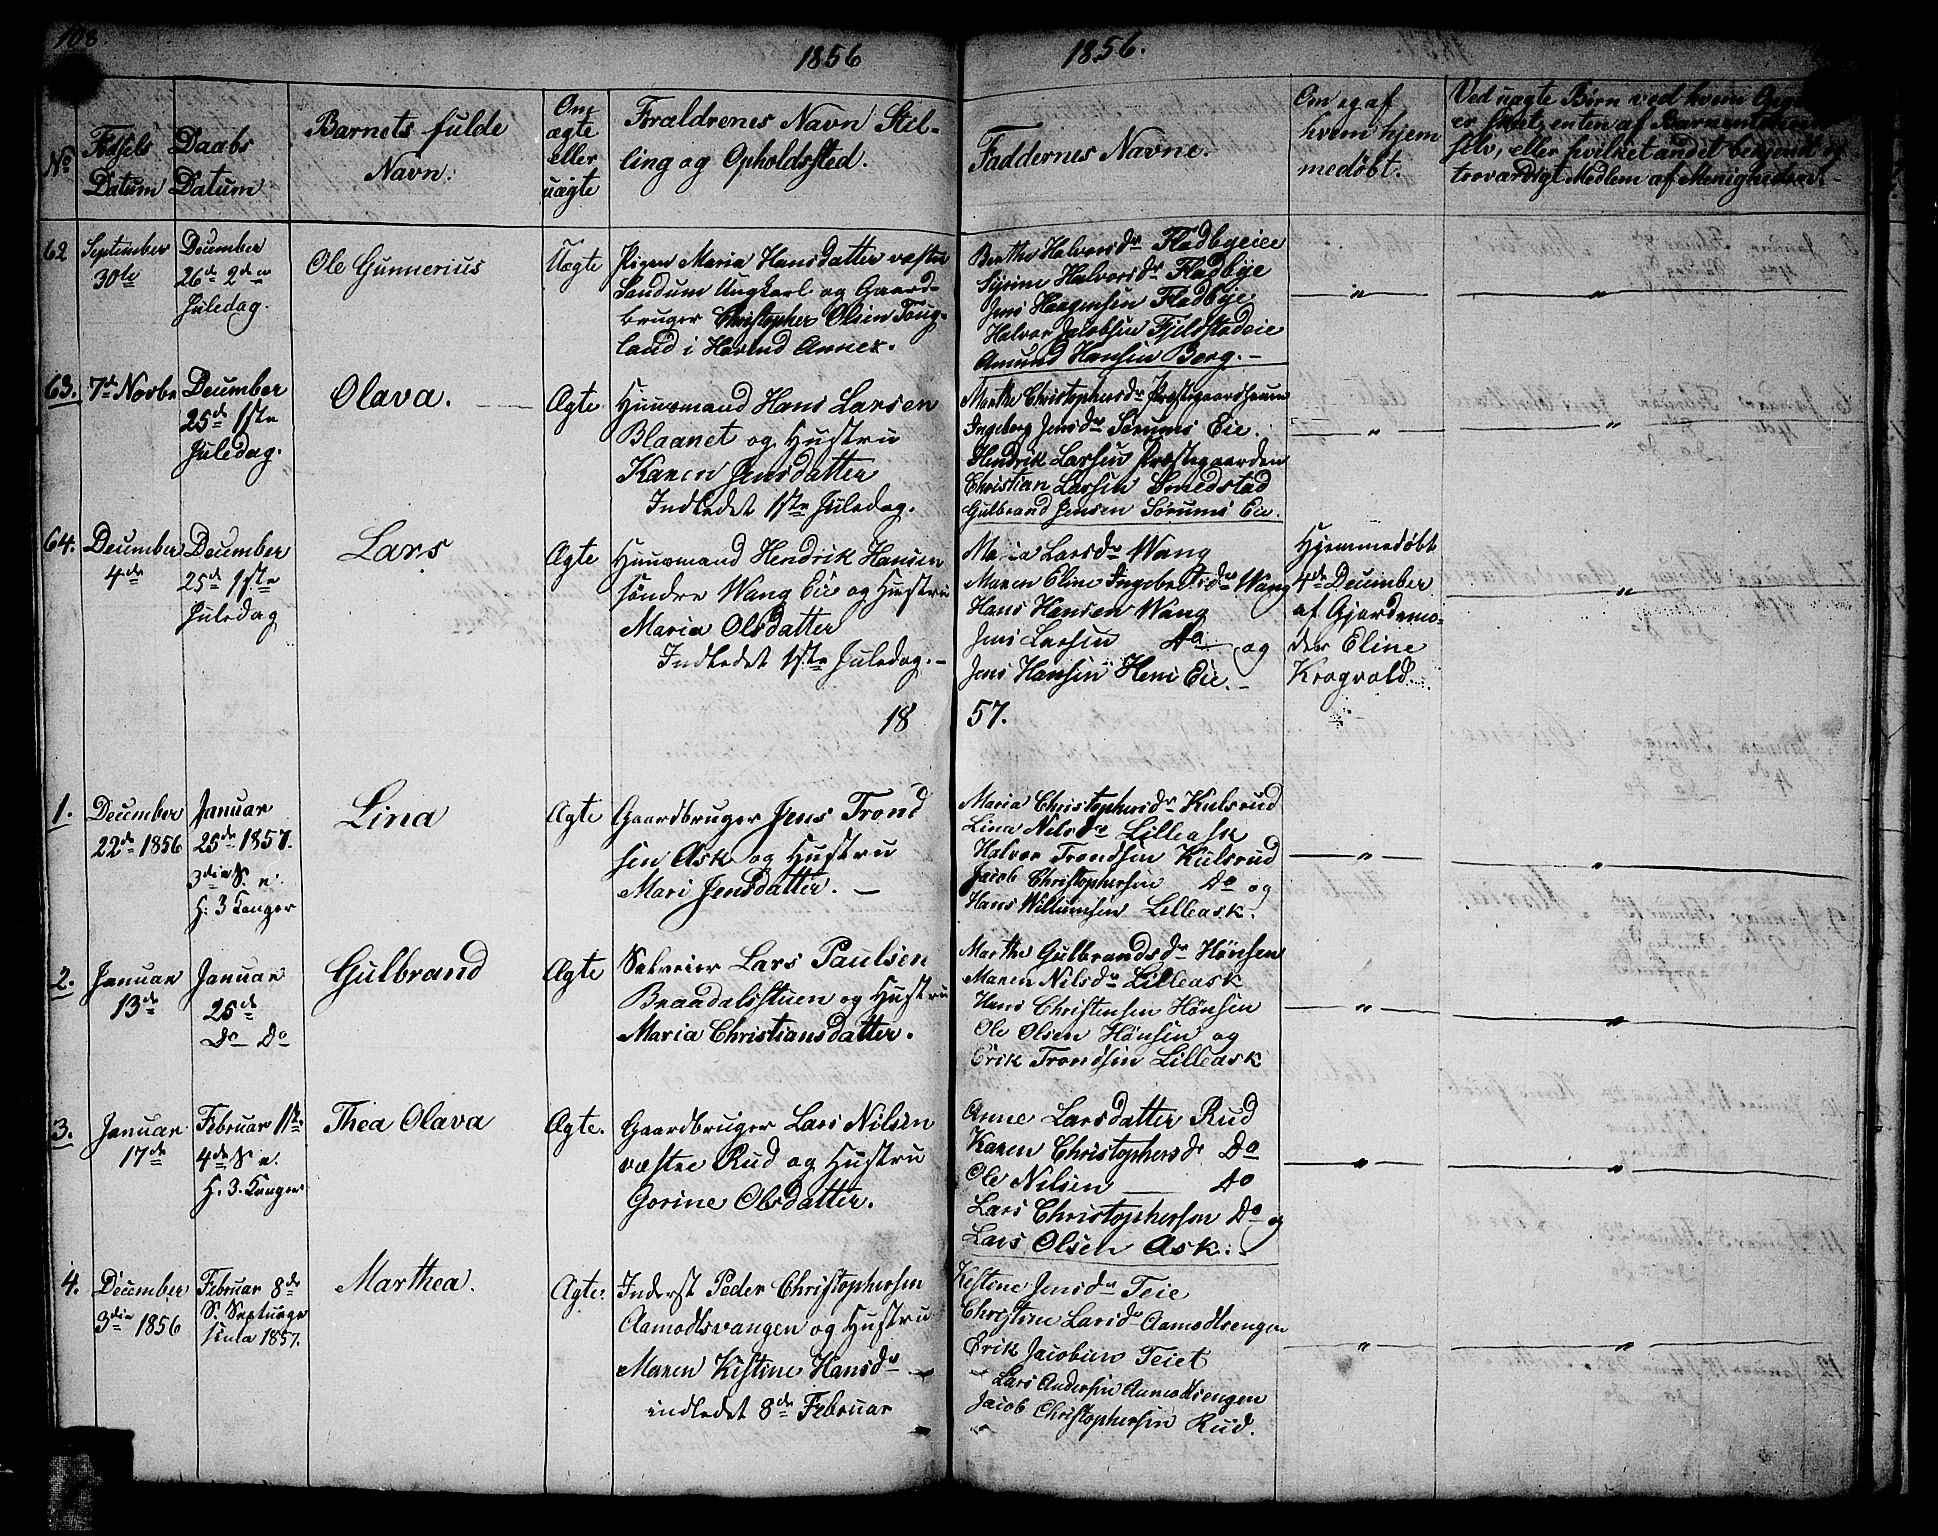 108.
1856
1856.
No
Fødsels
Datum
Daabs
Datum
Barnets fulde
Navn.
Om
ægte
eller
uægte
Forældrenes Navn Stil-
ling og Opholdssted.
Faddernes Navne.
Om og af
hvem hjem
medøbt.
Ved uægte Børn ved hvem
er skeet, enten af
selv, eller hvilket andet bekjendt og
troværdigt Medlem af Menigheden.
62
September
30te
December
26de 2den
Juledag.
Ole Gunnerius
Uægte
Pigen Maria Hansdatter væstre
Sandum Ungkarl og Gaard-
bruger Christopher Olsen Toug-
land i Hovind Annex.
Berthe Halvorsdr Fladbyeiee
Syrine Halvorsdr Fladbye
Jens Haagensen Fladbye
Halvor Jacobsen Fjeldstadeie
Amund Hansen Berg.
"
"
63.
7de Novbr
December
25de 1ste
Juledag.
Olava.
Ægte
Huusmand Hans Larsen
Blaanet og Hustru
Karen Jensdatter
Indledet 1ste Juledag.
Marthe Christophersdr
Ingeborg Jensdr Sørums Eie.
Hendrik Larsen Præstegaarden
Christian Larsen Smedstad
Gulbrand Jensen Sørums Eie.
"
"
64.
December
4de
December
25de 1ste
Juledag
Lars
Ægte
Huusmand Hendrik Hansen
søndre Wang Eie og Hustru
Maria Olsdatter
Indledet 1ste Juledag.
Maria Larsdr Wang
Maren Eline Ingebretsdr Wang
Hans Hansen Wang
Jens Larsen Do og
Jens Hansen Hem Eie.
Hjemmedøbt
4de December
af Gjordemo-
der Eline
Krogvold.
"
18
57.
1.
December
22de 1856
Januar
25de 1857.
3die S. e.
H: 3 Konger
Lina
Ægte
Gaardbruger Jens Trond
sen Ask og Hustru
Mari Jensdatter.
Maria Christophersdr Kulsrud
Lina Nilsdr Lilleask
Halvor Trondsen Kulsrud
Jacob Christophersen Do og
Hans Willumsen Lilleask.
"
"
2.
Januar
13de
Januar
25de
Do Do
Gulbrand
Ægte
Selveier Lars Paulsen
Braadalsstuen og Hustru
Maria Christiansdatter.
Marthe Gulbrandsdr Hønsen
Maren Nilsdr Lilleask
Hans Christensen Hønsen
Ole Olsen Hønsen og
Erik Trondsen Lilleask
"
"
3.
Januar
17de
Februar 1ste
4de S. e.
H. 3. Konger
Thea Olava
Ægte.
Gaardbruger Lars Nilsen
væstre Rud og Hustru
Gorine Olsdatter.
Anne Larsdatter Rud
Karen Christophersdr Do
Ole Nilsen Do
Lars Christophersen Do og
Lars Olsen Ask.
"
"
4.
December
3die 1856
Februar 8de
S. Septuage
sima 1857.
Marthea.
Ægte.
Inderst Peder Christophersen
Aamodtsvangen og Hustru
Maren Kistine Hansdr
indledet 8de Februar
Kistine Jensdr Teie
Christine Larsdr Aamodtsengen
Erik Jacobsen Teiet
Lars Andersen Aamodtsengen
Jacob Christophersen Rud.
"
"